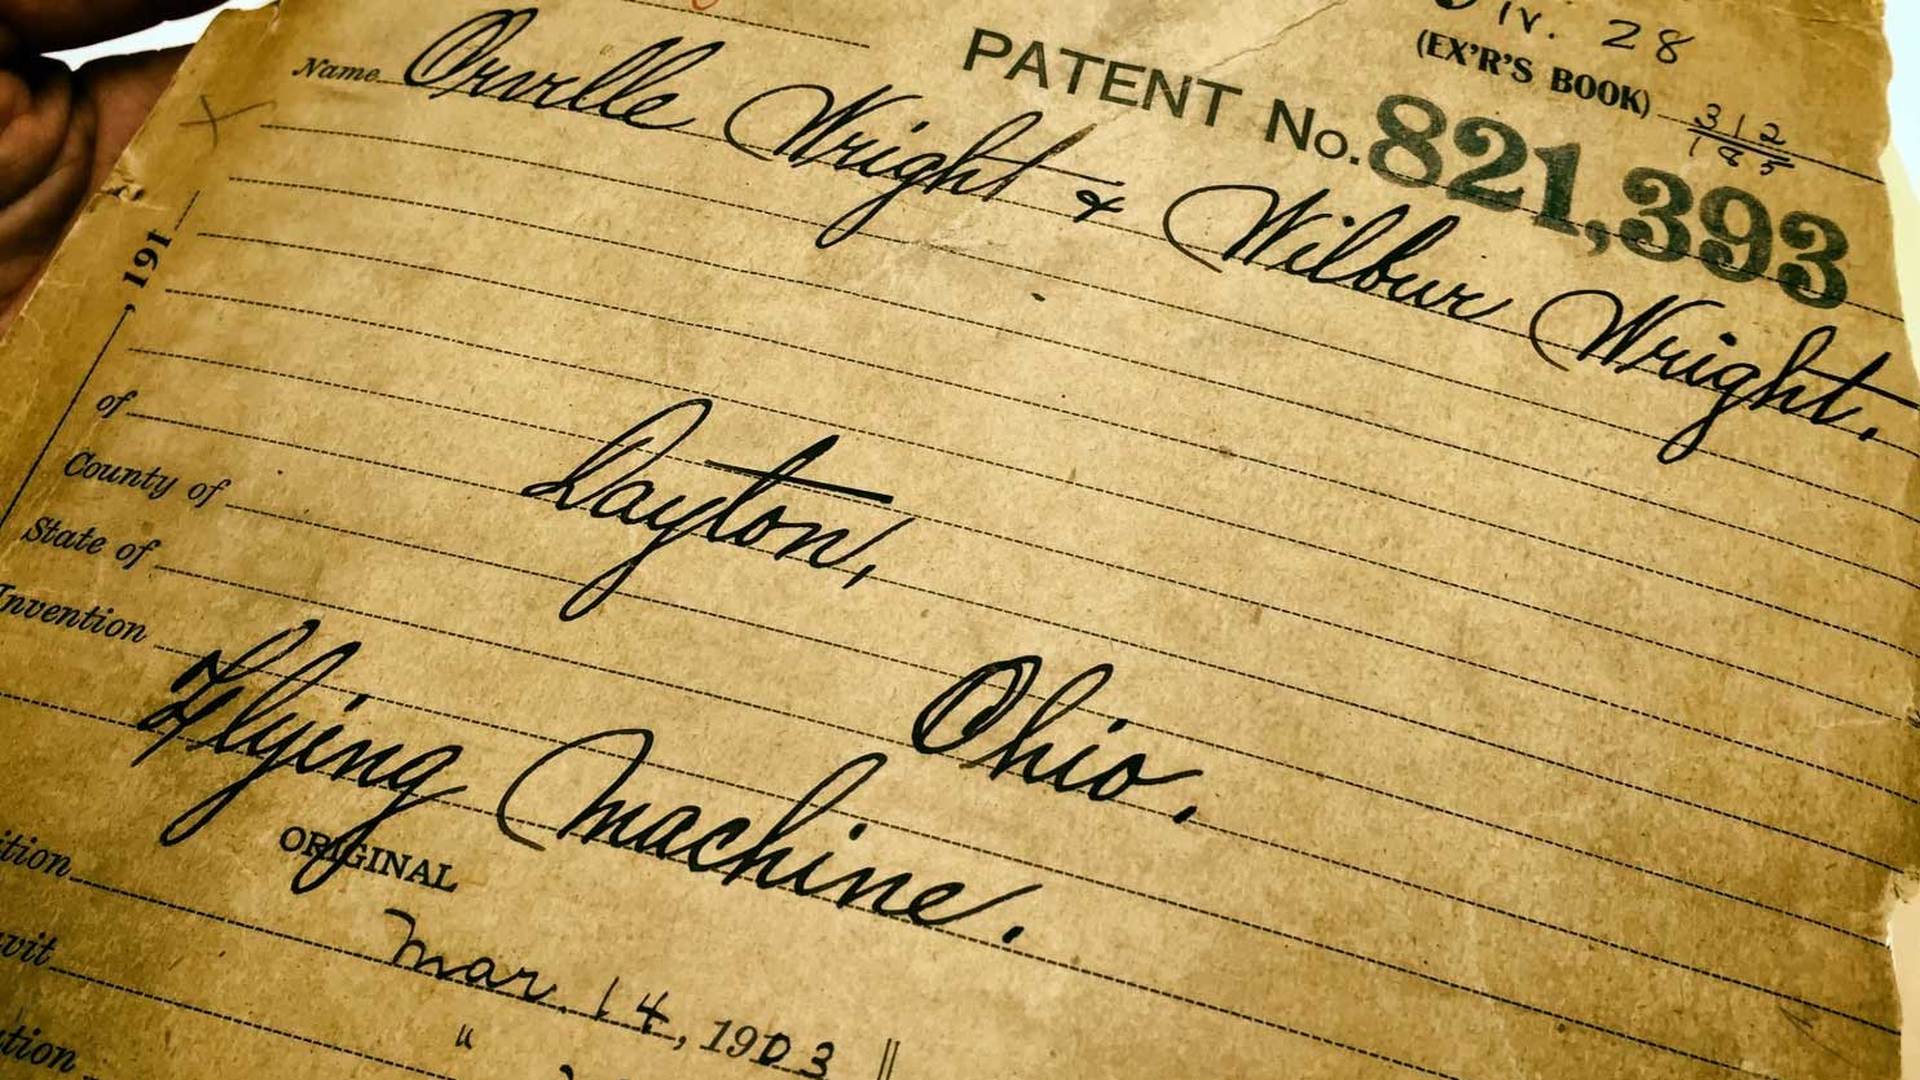 Div. 28
(EX'R'S BOOK) 312
185
PATENT No. 821,393
Name Orville Wright & Wilbur Wright.
, 191
of Dayton,
County of
State of Ohio.
Invention Flying Machine.
ORIGINAL
Mar. 14, 1903 ||
"